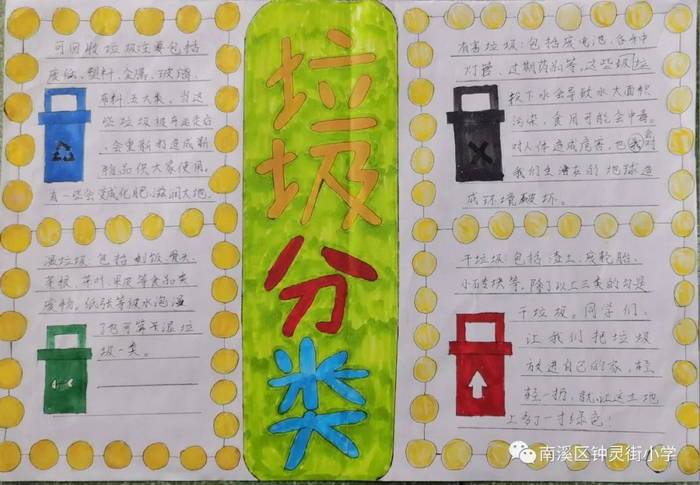 可回收垃圾主要包括
废纸、塑料、金属、玻璃、
布料五大类。当这
些垃圾被车运走后
、会重新打造成新
物品供大家使用。
有一些会变成化肥、滋润大地。
湿垃圾:包括剩饭、骨头、
菜根、菜叶、果皮等食品类
废物。纸张等被水泡湿
了也可算是湿垃
圾一类。
垃圾分类
有害垃圾:包括废电池、各种
灯管、过期药剂等,这些垃圾
投下水会导致水大面积
污染,食用可能会中毒。
对人体造成危害,也会对
我们生活在的地球造
成环境破坏。
干垃圾:包括渣土、废轮胎、
小石块等,除了以上三类的均是
干垃圾。同学们、
让我们把垃圾
放进自己的家,轻
轻一扔,就让这土地
上多了一寸绿色!
南溪区钟灵街小学